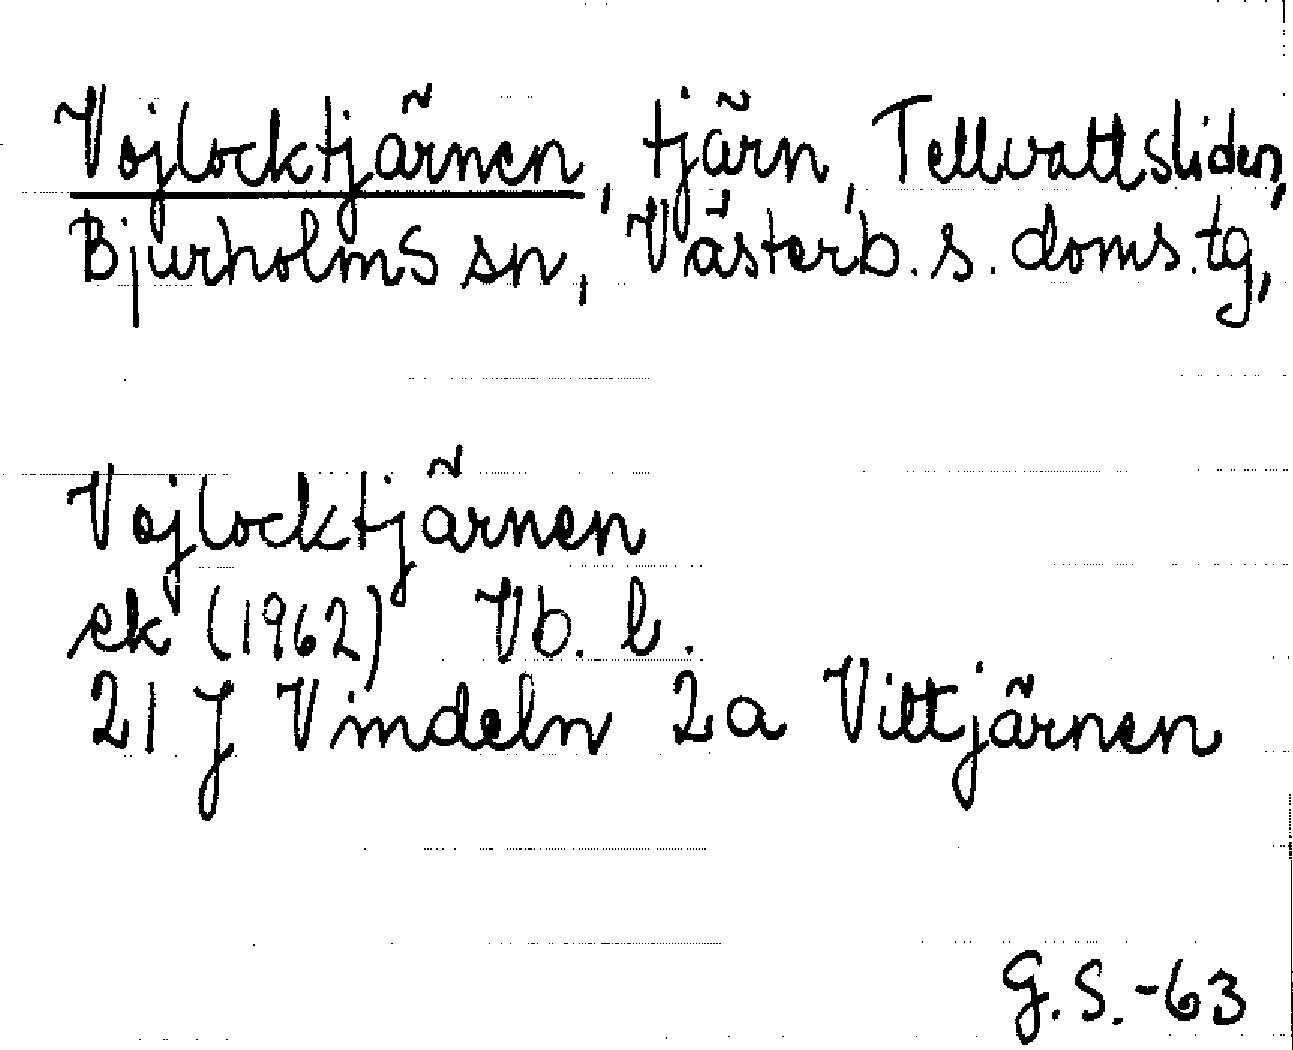 Vojlocktjärnen, tjärn, Tellvattsliden,
Bjurholms sn, Västerb. s. doms. tg,
Vojlocktjärnen
ek (1962) Vb. l.
21 J Vindeln 2a Vittjärnen
G.S.-63